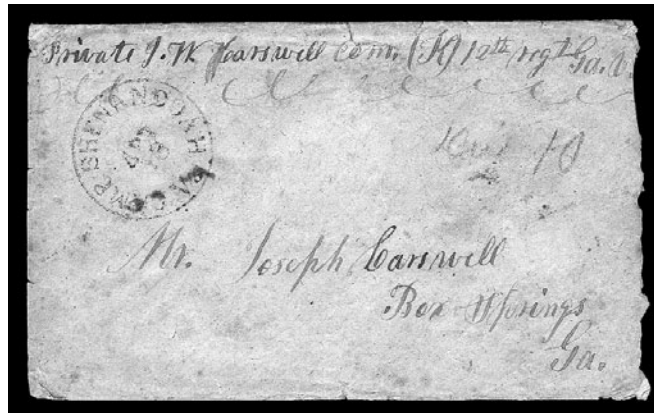 Private J. W. Carswell Com. (K) 12th regt Ga. V.
CAMP SHENANDOAH VA.
Due 10
Mr. Joseph Carswell
Box Springs
Ga.